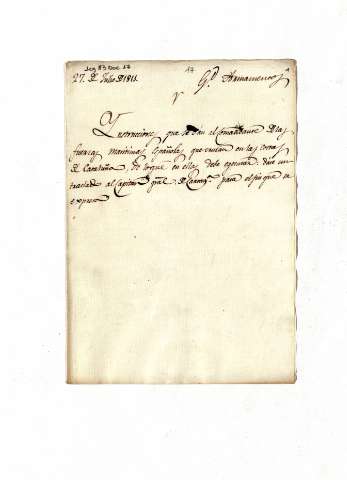 Leg 83 Doc 17
27. D. Julio D 1811.
17
G.l Armamentos
Y
Ynstrucciones que se dan al Comandante D las
fuerzas maritimas Españolas que cruzan en las costas
D Cataluña, de lo que en ellas debe executar: dase un
traslado al Capitan gral. para el fin que se
expresa